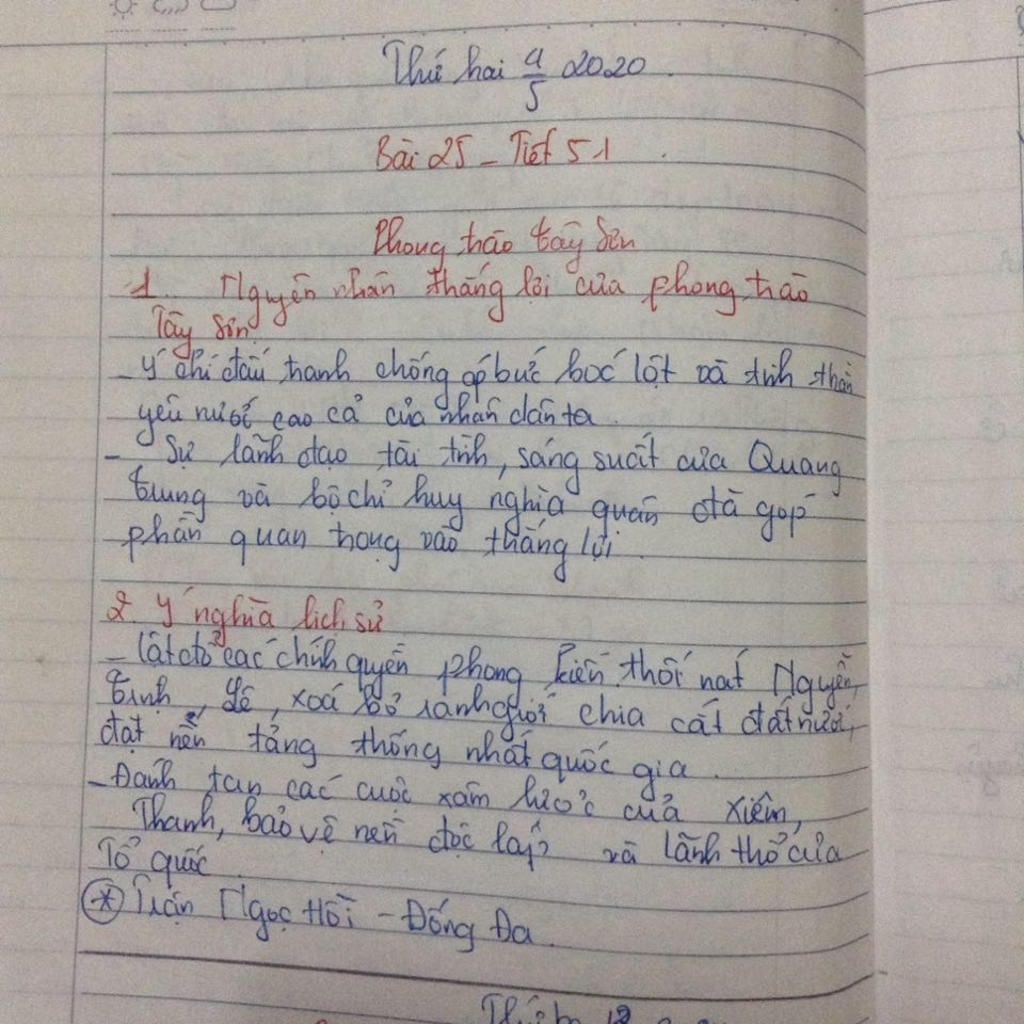 Thứ hai 4/5 2020
Bài 25 - Tiết 51
Phong trào tây Sơn
1. Nguyên nhân thắng lợi của phong trào
Tây Sơn
- Ý chí đấu tranh chống áp bức bóc lột và tinh thần
yêu nước cao cả của nhân dân ta
- Sự lãnh đạo tài tình, sáng suốt của Quang
trung và bộ chỉ huy nghĩa quân đã góp
phần quan trọng vào thắng lợi
2. Ý nghĩa lịch sử
- lật đổ các chính quyền phong kiến thối nát Nguyễn,
trịnh, Lê, xoá bỏ ranh giới chia cắt đất nước,
đặt nền tảng thống nhất quốc gia.
- Đánh tan các cuộc xâm lược của xiêm,
Thanh, bảo vệ nền độc lập và lãnh thổ của
Tổ quốc
* Trận Ngọc Hồi - Đống Đa